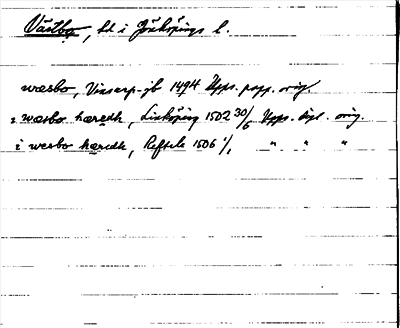 Västbo, hd i Jönköpings l.
wæsbo, Vinserp-jb 1494 Upps. papp. orig.
i wæsbo hæredh, Linköping 1502 30/6 Upps. dipl. orig.
i wesbo hæredh, Reftele 1506 1/1 " " "